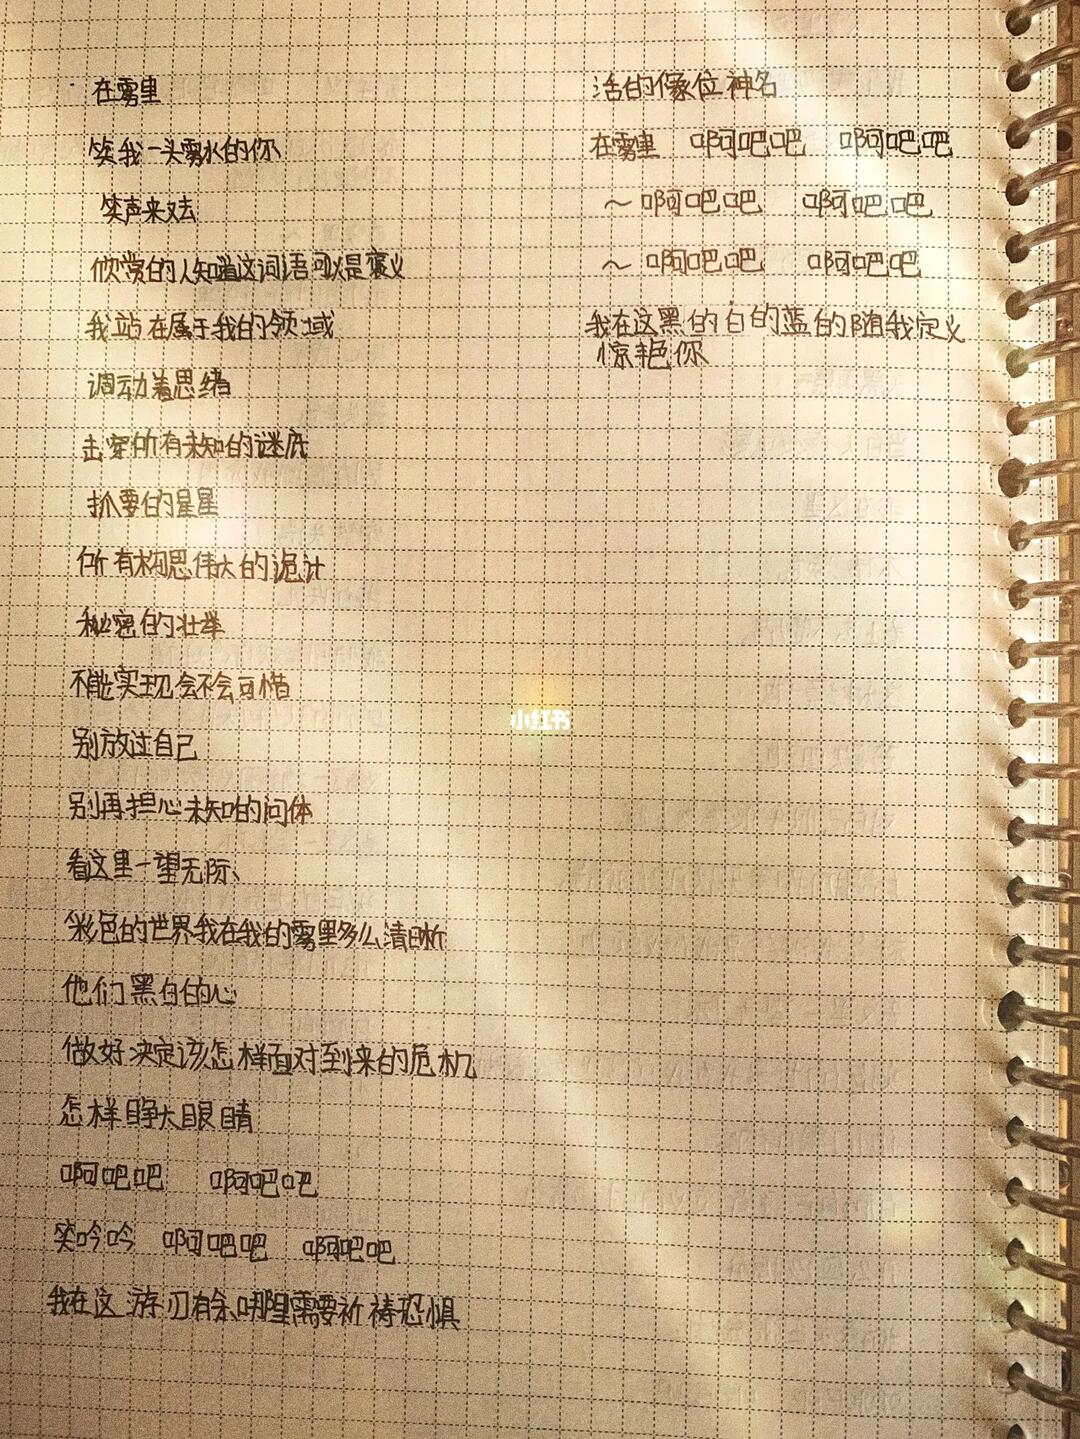 在雾里
笑我一头雾水的你
笑声来又去
欣赏的人知道这词语可以是褒义
我站在属于我的领域
调动着思绪
击穿所有未知的谜底
抓要的星星
所有构思伟大的诡计
秘密的壮举
不能实现会不会可惜
别放过自己
别再担心未知的问体
看这里一望无际、
彩色的世界我在我的雾里多么清晰
他们黑白的心
做好决定该怎样面对到来的危机
怎样睁大眼睛
啊吧吧 啊吧吧
笑吟吟 啊吧吧 啊吧吧
我在这游刃有余哪里需要祈祷恐惧
活的像位神名
在雾里 啊吧吧 啊吧吧
～啊吧吧 啊吧吧
～啊吧吧 啊吧吧
我在这黑的白的蓝的随我定义
惊艳你
小红书